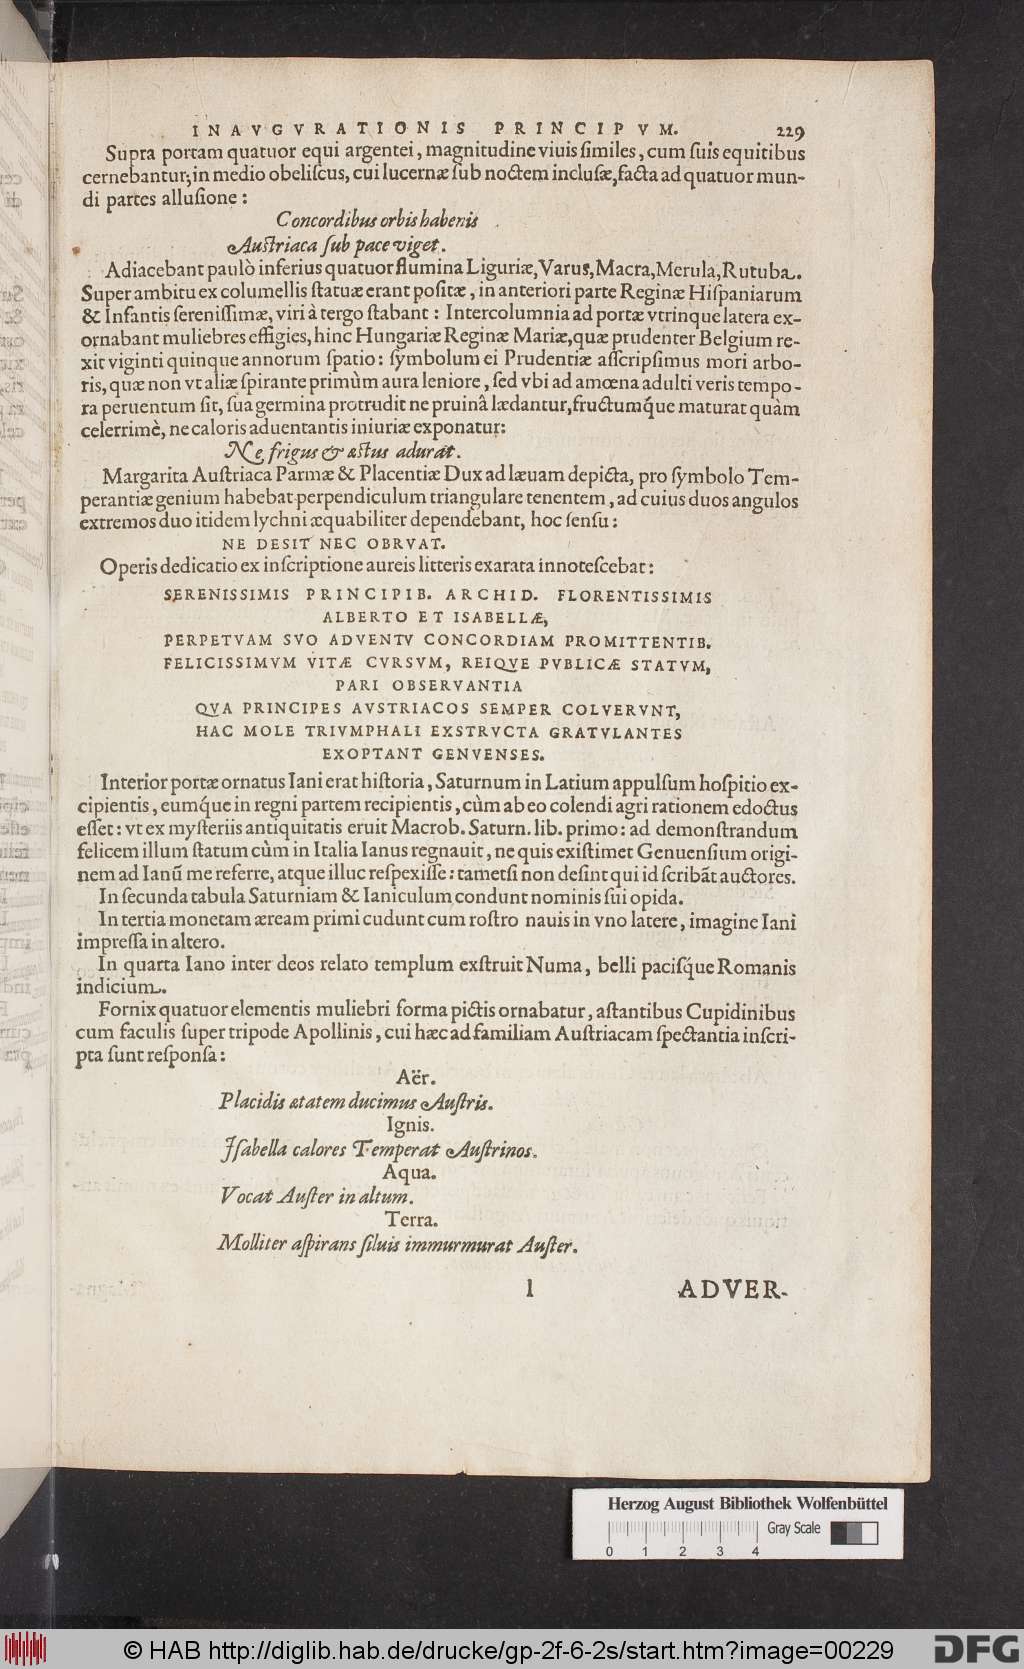 INAVGVRATIONIS PRINCIPVM. 229
Supra portam quatuor equi argentei, magnitudine viuis ſimiles, cum ſuis equitibus
cernebantur; in medio obeliſcus, cui lucernæ ſub noctem incluſæ, facta ad quatuor mun-
di partes alluſione:
Concordibus orbis habenis
Auſtriaca ſub pace viget.
Adiacebant paulò inferius quatuor flumina Liguriæ, Varus, Macra, Merula, Rutuba.
Super ambitu ex columellis ſtatuæ erant poſitæ, in anteriori parte Reginæ Hiſpaniarum
& Infantis ſereniſſimæ, viri à tergo ſtabant: Intercolumnia ad portæ vtrinque latera ex-
ornabant muliebres effigies, hinc Hungariæ Reginæ Mariæ, quæ prudenter Belgium re-
xit viginti quinque annorum ſpatio: ſymbolum ei Prudentiæ aſſcripſimus mori arbo-
ris, quæ non vt aliæ ſpirante primùm aura leniore, ſed vbi ad amœna adulti veris tempo-
ra peruentum ſit, ſua germina protrudit ne pruinâ lædantur, fructumq́ue maturat quàm
celerrimè, ne caloris aduentantis iniuriæ exponatur:
Ne frigus & æstus adurat.
Margarita Auſtriaca Parmæ & Placentiæ Dux ad læuam depicta, pro ſymbolo Tem-
perantiæ genium habebat perpendiculum triangulare tenentem, ad cuius duos angulos
extremos duo itidem lychni æquabiliter dependebant, hoc ſenſu:
NE DESIT NEC OBRVAT.
Operis dedicatio ex inſcriptione aureis litteris exarata innoteſcebat:
SERENISSIMIS PRINCIPIB. ARCHID. FLORENTISSIMIS
ALBERTO ET ISABELLÆ,
PERPETVAM SVO ADVENTV CONCORDIAM PROMITTENTIB.
FELICISSIMVM VITÆ CVRSVM, REIQVE PVBLICÆ STATVM,
PARI OBSERVANTIA
QVA PRINCIPES AVSTRIACOS SEMPER COLVERVNT,
HAC MOLE TRIVMPHALI EXSTRVCTA GRATVLANTES
EXOPTANT GENVENSES.
Interior portæ ornatus Iani erat hiſtoria, Saturnum in Latium appulſum hoſpitio ex-
cipientis, eumq́ue in regni partem recipientis, cùm ab eo colendi agri rationem edoctus
eſſet: vt ex myſteriis antiquitatis eruit Macrob. Saturn. lib. primo: ad demonſtrandum
felicem illum ſtatum cùm in Italia Ianus regnauit, ne quis exiſtimet Genuenſium origi-
nem ad Ianũ me referre, atque illuc reſpexiſſe: tametſi non deſint qui id ſcribãt auctores.
In ſecunda tabula Saturniam & Ianiculum condunt nominis ſui opida.
In tertia monetam æream primi cudunt cum roſtro nauis in vno latere, imagine Iani
impreſſa in altero.
In quarta Iano inter deos relato templum exſtruit Numa, belli paciſq́ue Romanis
indicium.
Fornix quatuor elementis muliebri forma pictis ornabatur, aſtantibus Cupidinibus
cum faculis ſuper tripode Apollinis, cui hæc ad familiam Auſtriacam ſpectantia inſcri-
pta ſunt reſponſa:
Aër.
Placidis ætatem ducimus Auſtris.
Ignis.
Iſabella calores Temperat Auſtrinos.
Aqua.
Vocat Auſter in altum.
Terra.
Molliter aſpirans ſiluis immurmurat Auſter.
l ADVER-
Herzog August Bibliothek Wolfenbüttel
Gray Scale
0 1 2 3 4
© HAB http://diglib.hab.de/drucke/gp-2f-6-2s/start.htm?image=00229
DFG